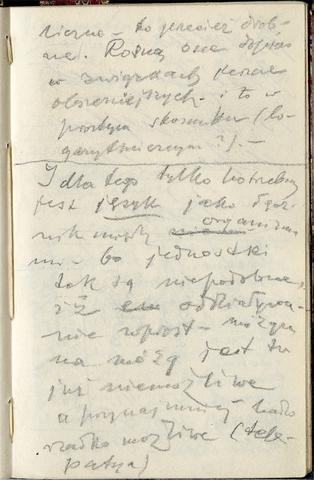 to przecież drob-
ne. Rosną one dopiero
w związkach
i to w
prostym stosunku (lo-
garytmicznym?). —
I dla tego tylko potrzebny
jest język jako łącz-
nik między organizma
mi — bo jednostki
tak są niepodobne,
iż oddziaływa-
nie wprost — mózgu
na mózg jest tu
już niemożliwe
a przynajmniej
rzadko możliwe (tele-
patya)